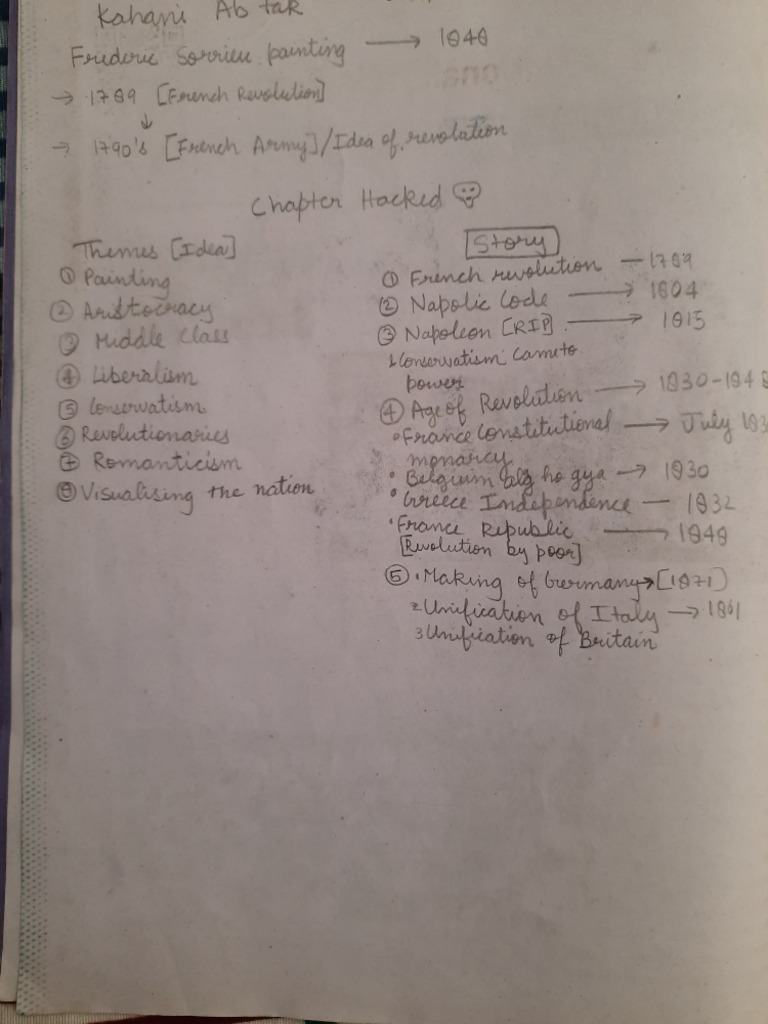 Kahani Ab tak
Frederic Sorrieu painting → 1848
→ 1789 [French Revolution]
↓
→ 1790's [French Army]/Idea of revolution
Chapter Hacked
Themes [Idea]
① Painting
② Aristocracy
③ Middle Class
④ Liberalism
⑤ Conservatism
⑥ Revolutionaries
⑦ Romanticism
⑧ Visualising the nation
Story
① French revolution — 1789
② Napolic Code → 1804
③ Napoleon [RIP] → 1815
↳ Conservatism came to
power
④ Age of Revolution → 1830-1848
• France Constitutional → July 183
monarcy
• Belgium alg ho gya → 1830
• Greece Independence — 1832
• France Republic → 1848
[Revolution by poor]
⑤ 1 Making of Germany → [1871]
2 Unification of Italy → 1861
3 Unification of Britain